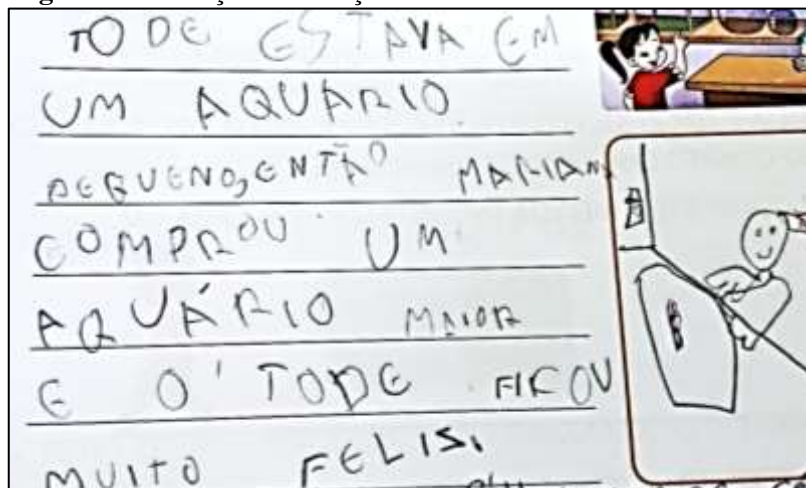 TODE ESTAVA EM
UM AQUARIO.
PEQUENO, ENTÃO MARIANA
COMPROU UM
AQUÁRIO MAIOR
E O TODE FICOU
MUITO FELISI